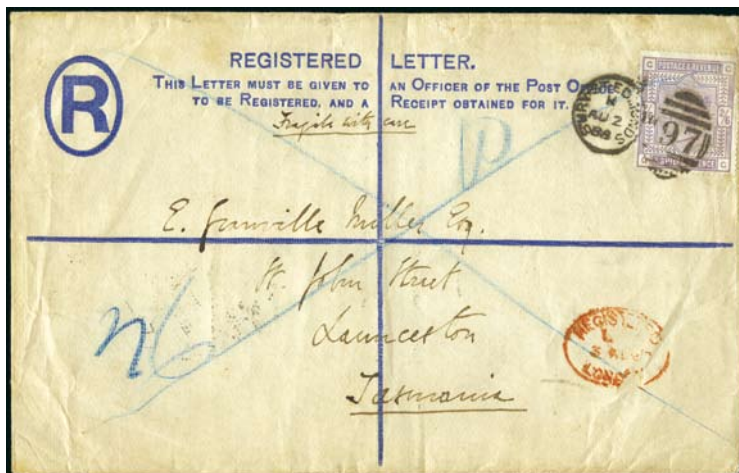 REGISTERED LETTER.
THIS LETTER MUST BE GIVEN TO AN OFFICER OF THE POST OFFICE
TO BE REGISTERED, AND A RECEIPT OBTAINED FOR IT.
R
Fragile with care
POSTAGE & REVENUE
97
AU 2
88
E. Miller Esq.
St. John Street
Launceston
Tasmania
REGISTERED
LONDON